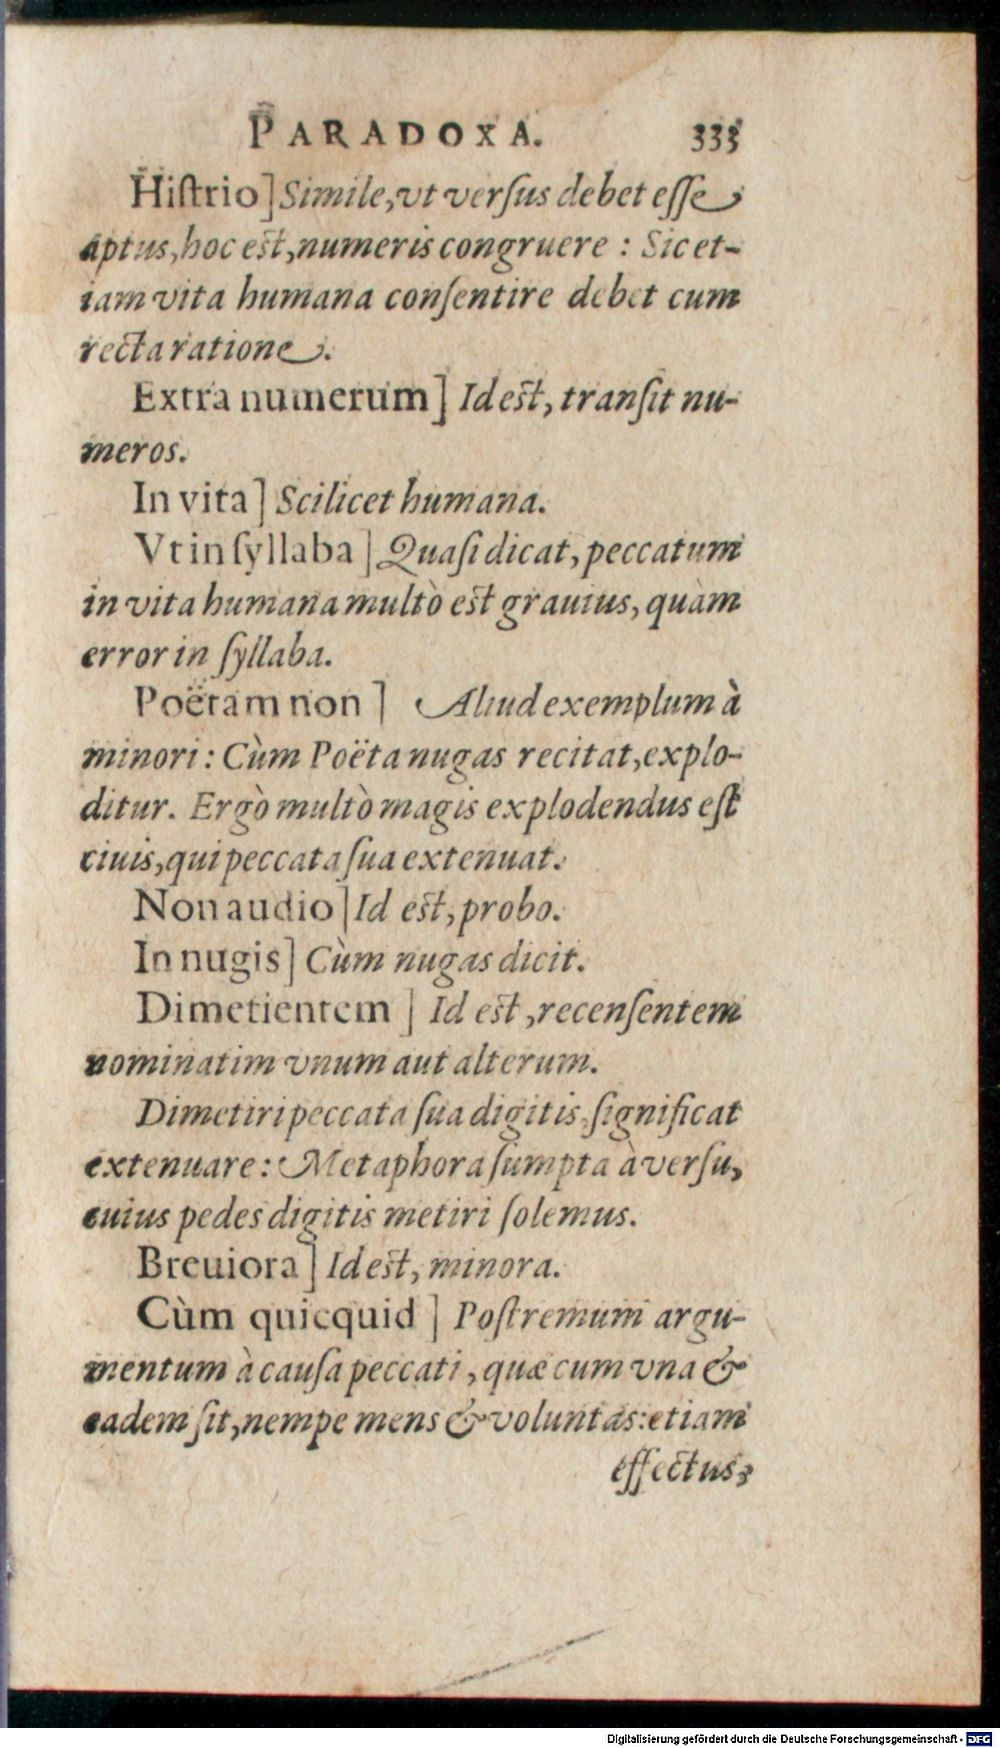 PARADOXA. 333
Hiſtrio] Simile, vt verſus debet eſſe
aptus, hoc est, numeris congruere : Sic et-
iam vita humana conſentire debet cum
recta ratione.
Extra numerum] Id est, tranſit nu-
meros.
In vita] Scilicet humana.
Vt in ſyllaba] Quaſi dicat, peccatum
in vita humana multò est grauius, quàm
error in ſyllaba.
Poëtam non] Aliud exemplum à
minori: Cùm Poëta nugas recitat, explo-
ditur. Ergò multò magis explodendus eſt
ciuis, qui peccata ſua extenuat.
Non audio] Id est, probo.
In nugis] Cùm nugas dicit.
Dimetientem] Id est, recenſentem
nominatim vnum aut alterum.
Dimetiri peccata ſua digitis, ſignificat
extenuare: Metaphora ſumpta à verſu,
cuius pedes digitis metiri ſolemus.
Breuiora] Id est, minora.
Cùm quicquid] Poſtremum argu-
mentum à cauſa peccati, quæ cum vna &
eadem ſit, nempe mens & voluntas: etiam
effectus,
Digitalisierung gefördert durch die Deutsche Forschungsgemeinschaft - DFG